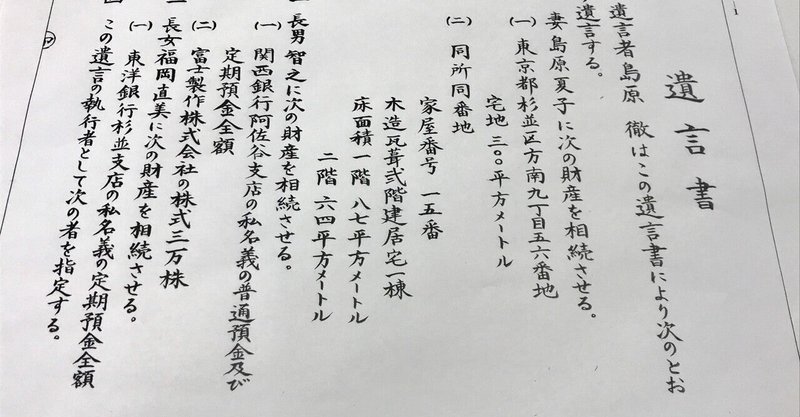 遺言書
遺言者島原 徹はこの遺言書により次のとお
遺言する。
妻島原夏子に次の財産を相続させる。
(一) 東京都杉並区方南九丁目五六番地
宅地 三〇〇平方メートル
(二) 同所同番地
家屋番号 一五番
木造瓦葺弐階建居宅一棟
床面積 一階 八七平方メートル
二階 六四平方メートル
長男 智之に次の財産を相続させる。
(一) 関西銀行阿佐谷支店の私名義の普通預金及び
定期預金全額
(二) 富士製作株式会社の株式三万株
長女福岡直美に次の財産を相続させる。
(一) 東洋銀行杉並支店の私名義の定期預金全額
この遺言の執行者として次の者を指定する。